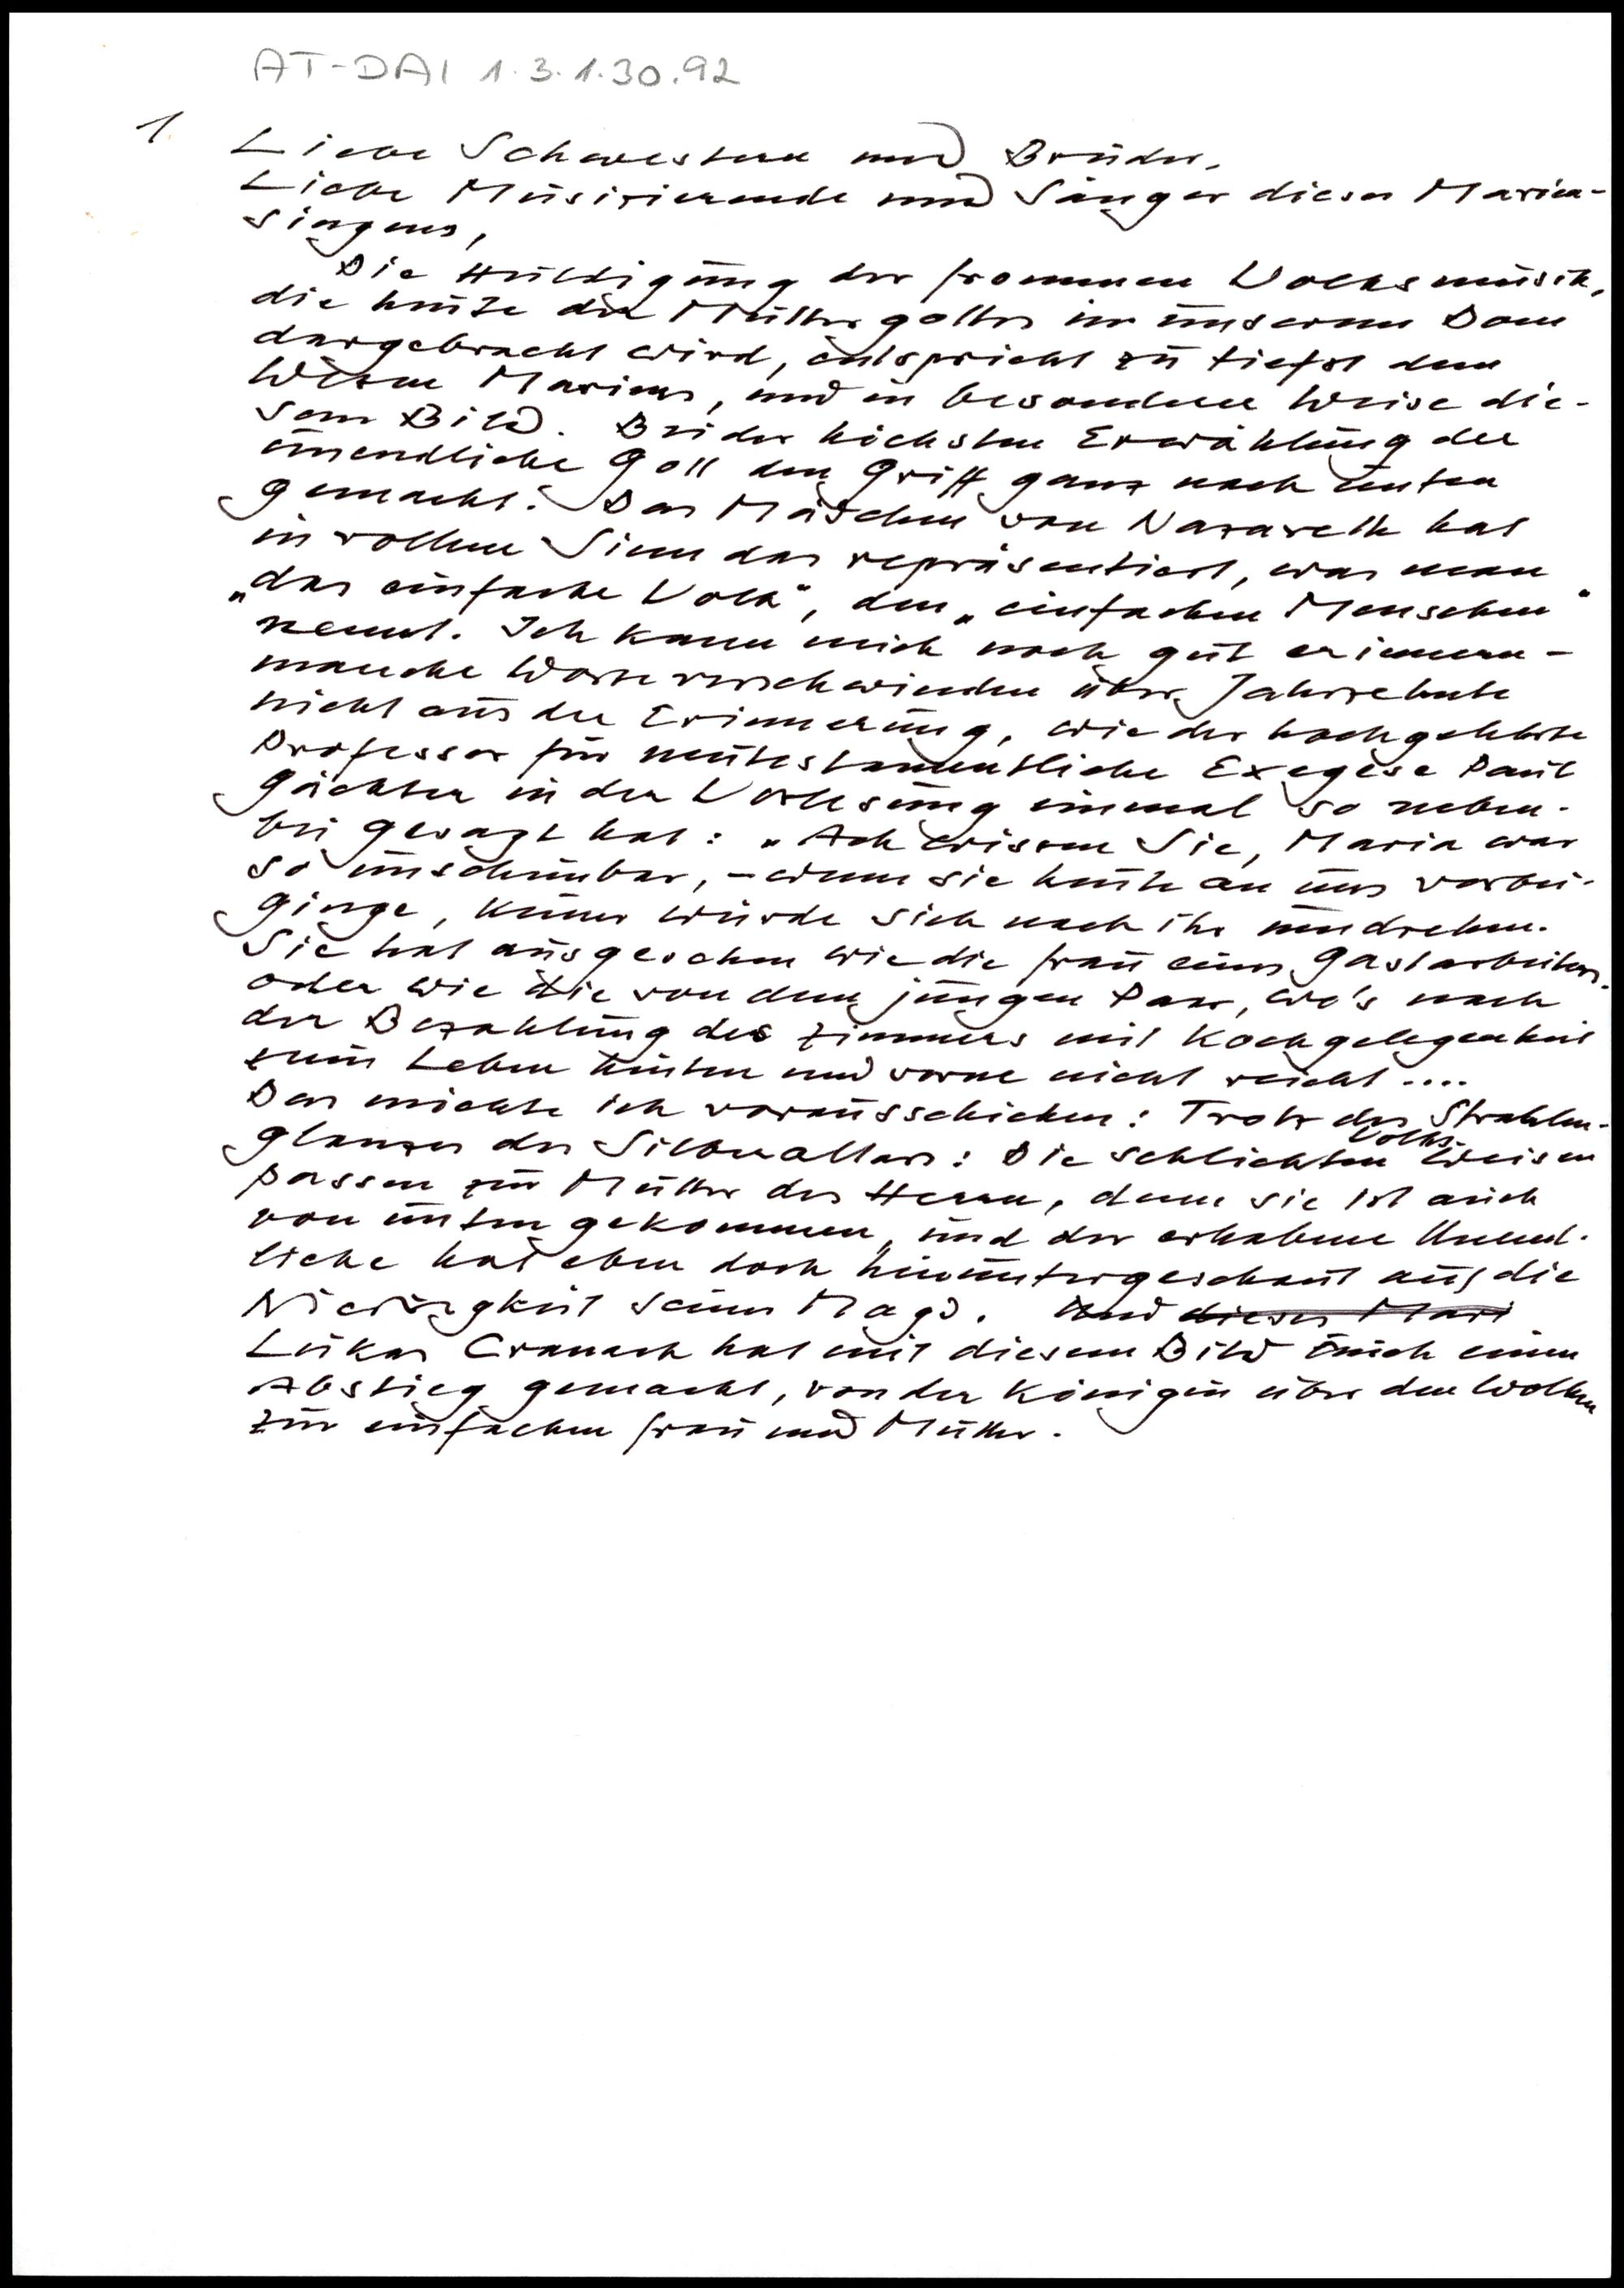 AT-DAI 1.3.1.30.92
1
Liebe Schwestern und Brüder,
Liebe Musizierende und Sänger dieses Marien-
singens,
Die Huldigung der frommen Volksmusik,
die heute der Mutter gottes in unserem Dom
dargebracht wird, entspricht zu tiefst dem
Wesen Mariens, und in besonderer Weise die-
sem Bild. Bei der höchsten Erwählung der
unendliche Gott den Griff ganz nach unten
gemacht. Das Mädchen von Nazareth hat
in vollem Sinn das repräsentiert, was man
„das einfache Volk", den „einfachen Menschen"
nennt. Ich kann mich noch gut erinnern -
manche Worte verschwinden über Jahrzehnte
nicht aus der Erinnerung, wie der hochgelehrte
Professor für neutestamentliche Exegese Paul
Gächter in der Vorlesung einmal so neben-
bei gesagt hat: „Ach wissen Sie, Maria war
so unscheinbar, - wenn sie heute an uns vorbei-
ginge, keiner würde sich nach ihr umdrehen.
Sie hat ausgesehen wie die Frau eines Gastarbeiters.
oder wie die von dem jungen Paar, wo's nach
der Bezahlung des Zimmers mit Kochgelegenheit
zum Leben hinten und vorne nicht reicht ....
Das möchte ich vorausschicken: Trotz des Strahlen-
glanzes des Silberaltars: Die schlichten Volks-Weisen
passen zur Mutter des Herrn, denn sie ist auch
von unten gekommen, und der erhabene Unend-
liche hat eben doch hinuntergeschaut auf die
Niedrigkeit seiner Magd. Und dieses Mari
Lukas Cranach hat mit diesem Bild auch einen
Abstieg gemacht, von der Königin über den Wolken
zur einfachen Frau und Mutter.